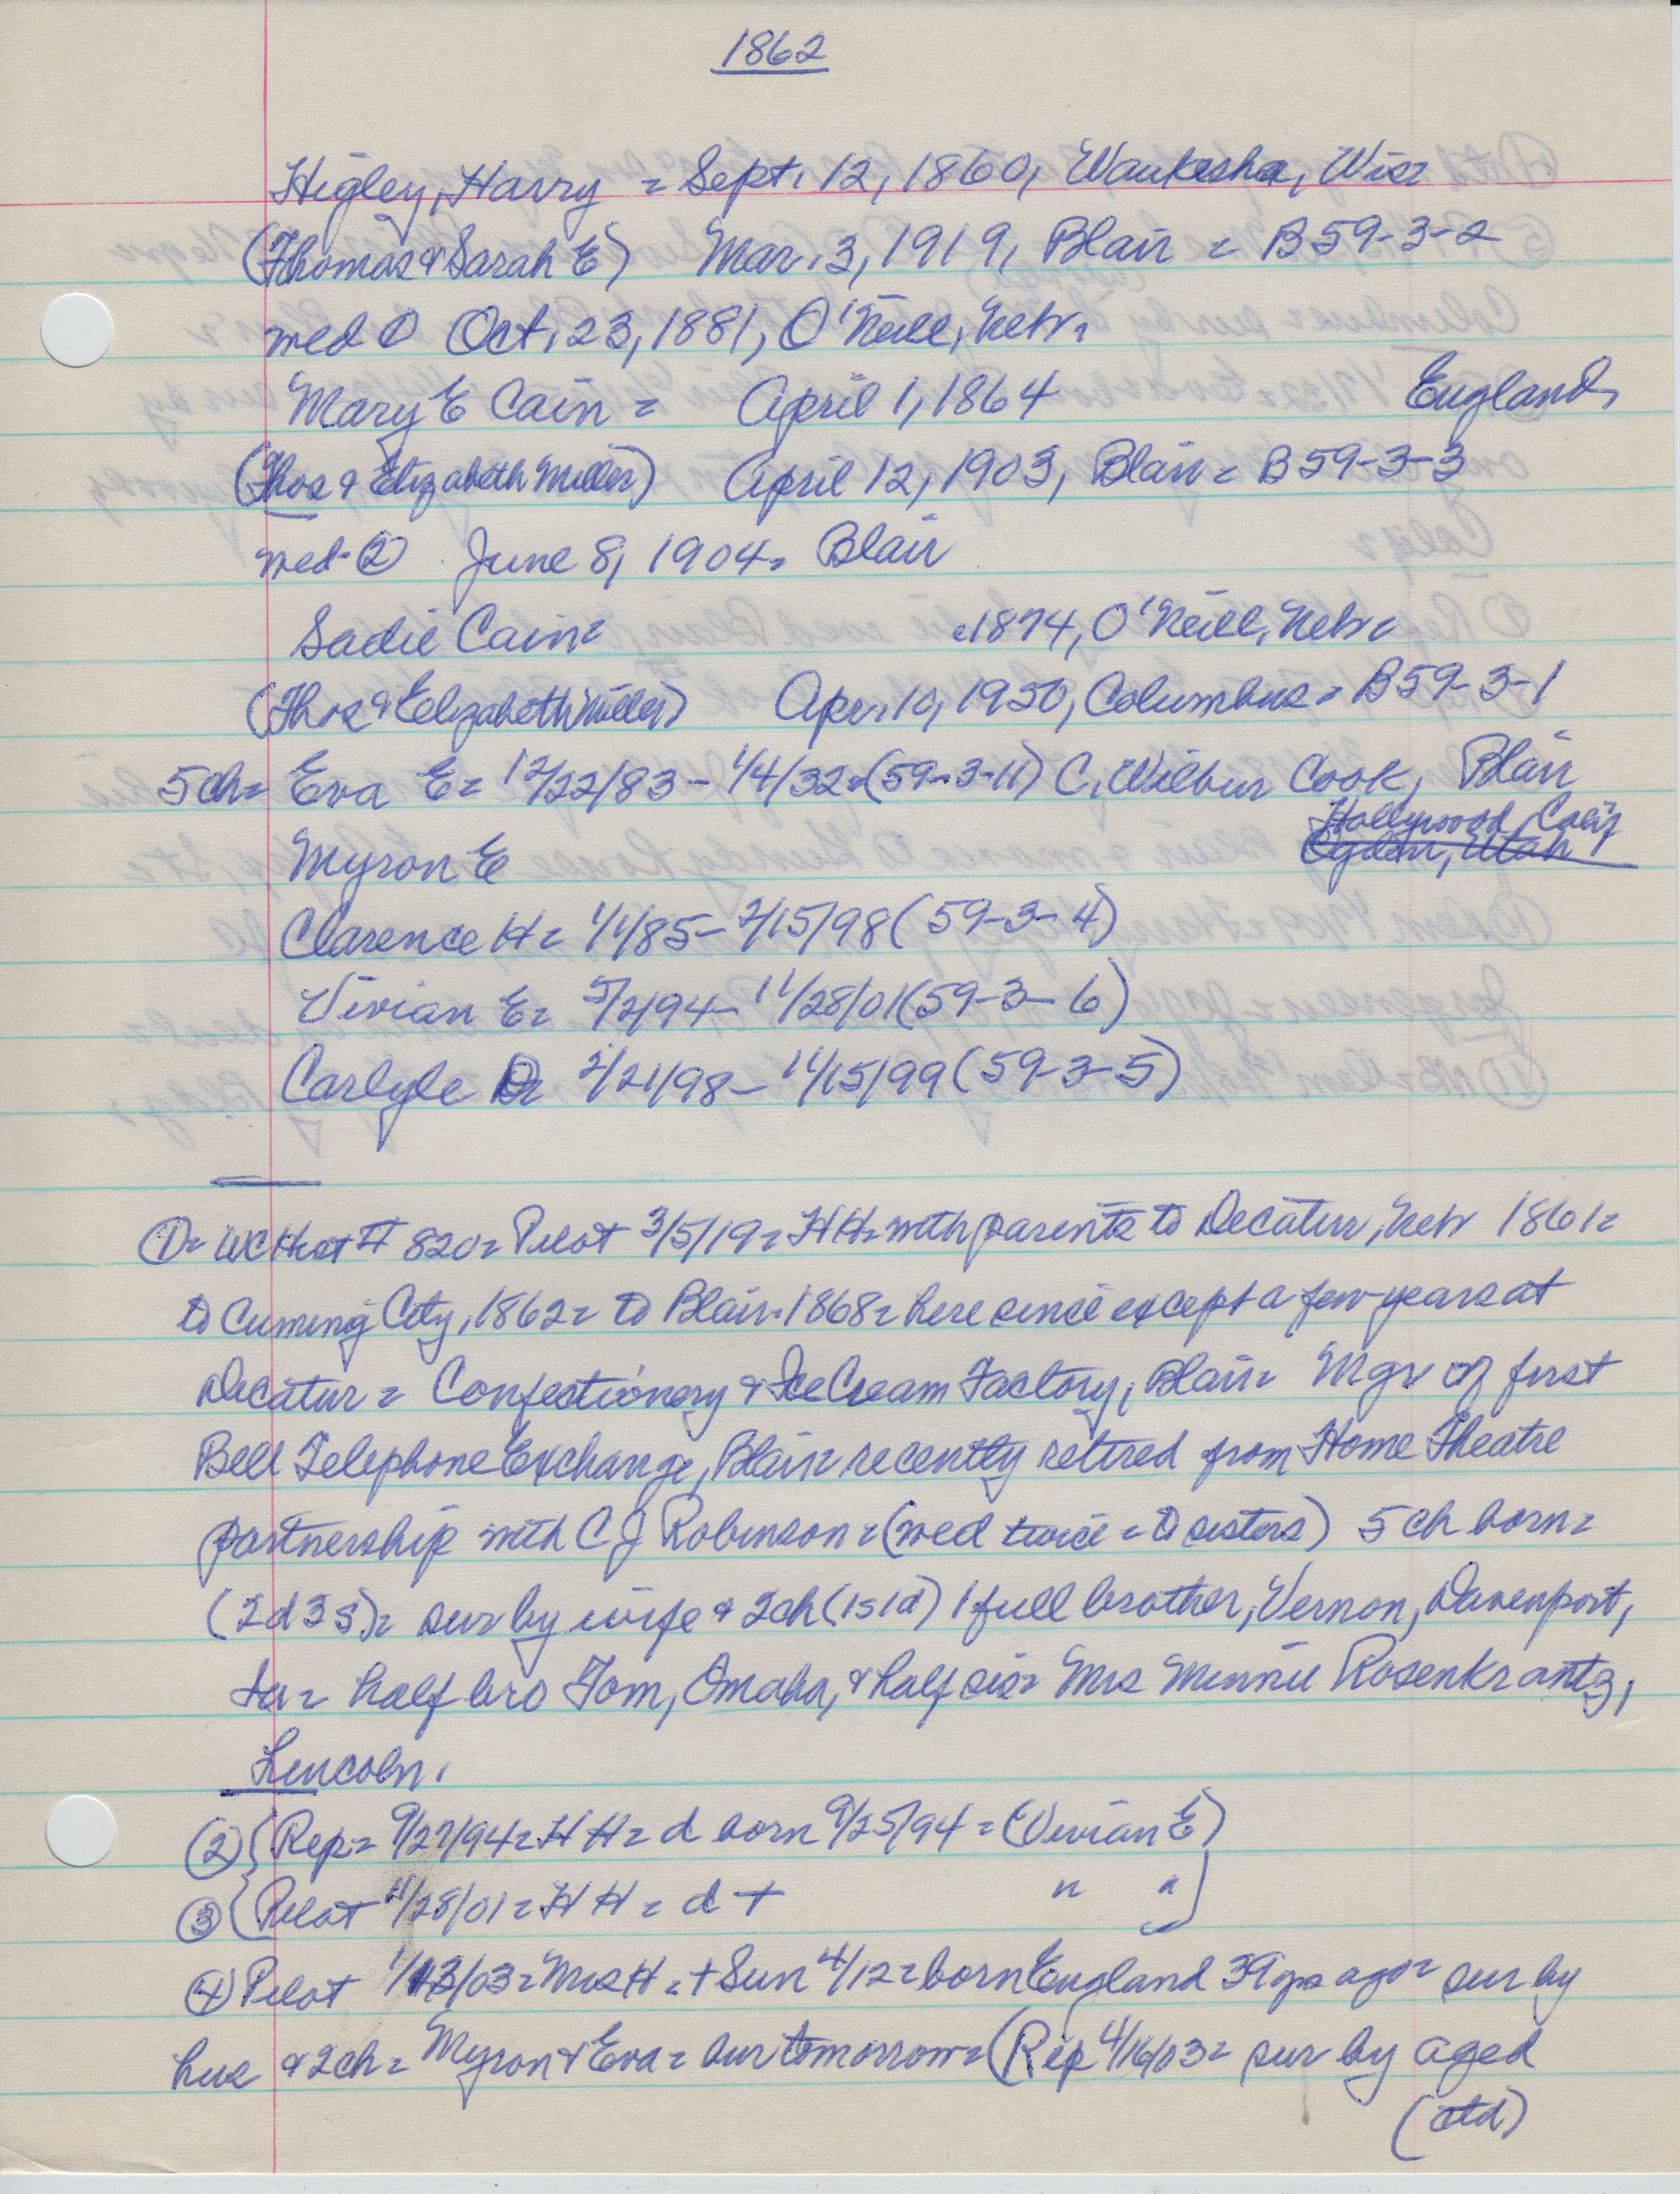 1862
Higley, Harry = Sept. 12, 1860, Waukesha, Wis=
(Thomas & Sarah E) Mar. 3, 1919, Blair = B59-3-2
wed ① Oct. 23, 1881, O'Neill, Nebr.
Mary E Cain = April 1, 1864 England,
(Thos & Elizabeth Miller) April 12, 1903, Blair = B59-3-3
wed ② June 8, 1904 = Blair
Sadie Cain = 1874, O'Neill, Nebr=
(Thos & Elizabeth Miller) Apr. 10, 1950, Columbus = B59-3-1
5 ch= Eva E= 12/22/83 - 1/4/32=(59-3-11) C. Wilbur Cook, Blair
Hollywood, Calif
Myron E Ogden, Utah
Clarence H= 1/1/85 - 2/15/98 (59-3-4)
Vivian E= 9/2/94 - 11/28/01 (59-3-6)
Carlyle D= 2/21/98 - 11/15/99 (59-3-5)
①= WCHist # 820= Pilot 3/5/19= HH= with parents to Decatur, Nebr 1861=
to Cuming City, 1862= to Blair. 1868= here since except a few years at
Decatur = Confectionery & Ice Cream Factory, Blair= Mgr of first
Bell Telephone Exchange, Blair= recently retired from Home Theatre
partnership with C J Robinson = (wed twice = to sisters) 5 ch born=
(2d 3s)= sur by wife & 2ch (1s 1d) 1 full brother, Vernon, Davenport,
Ia= half bro Tom, Omaha, & half sis= Mrs Minnie Rosenkrantz,
Lincoln.
② Rep= 9/27/94= HH= d born 9/25/94 = (Vivian E)
③ Pilot 11/28/01 = HH = d + " "
④ Pilot /13/03= Mrs H = + Sun 4/12= born England 39 yrs ago= sur by
hus & 2ch= Myron & Eva= bur tomorrow= (Rep 4/16/03= sur by aged
(ctd)